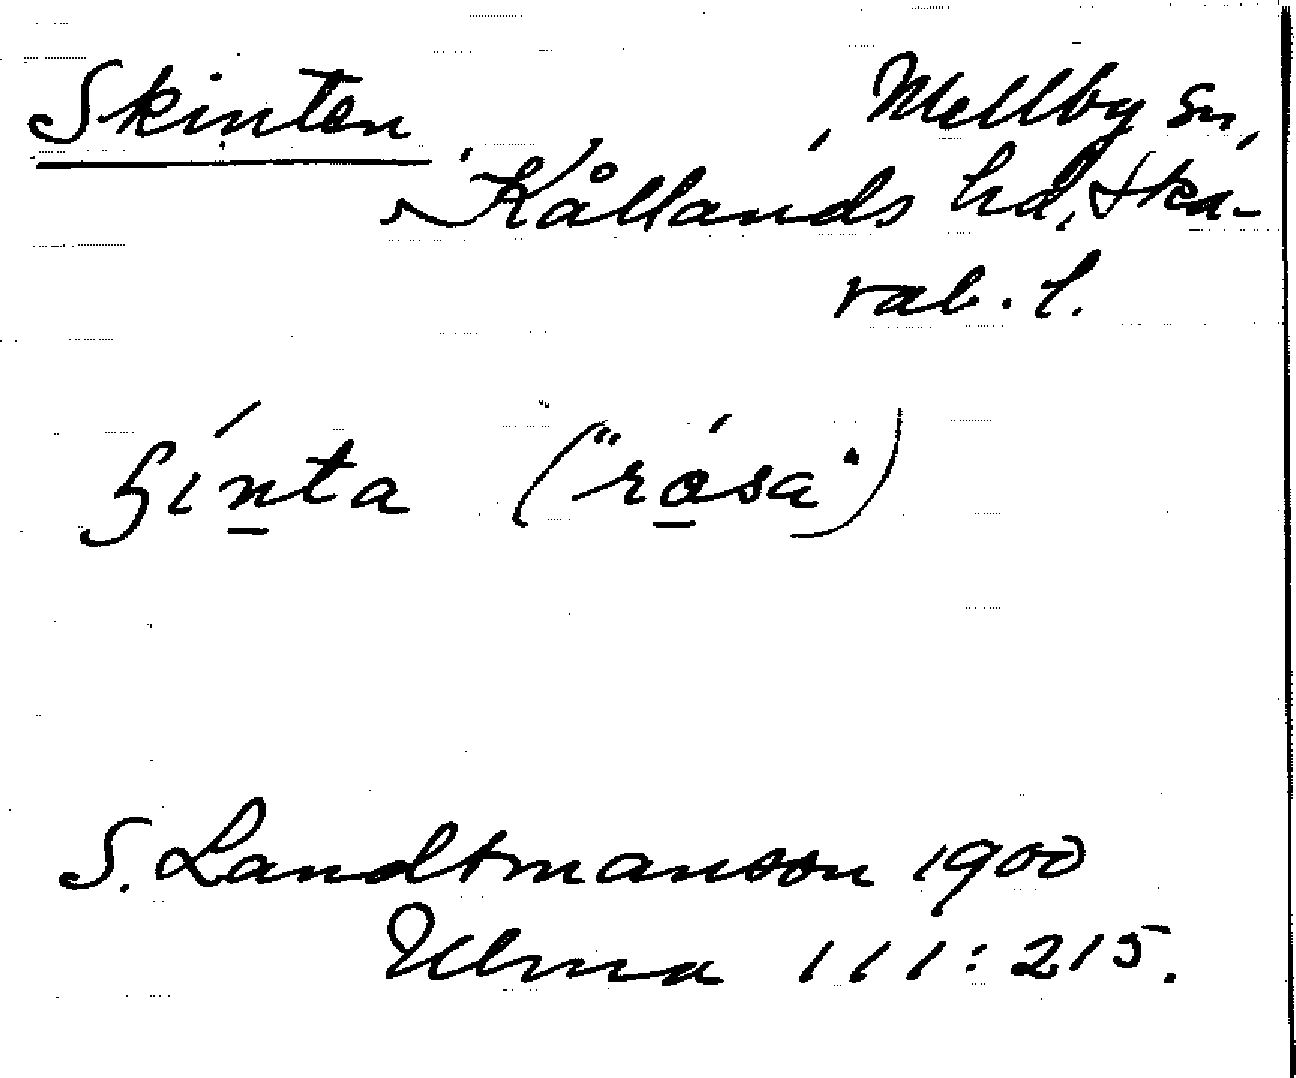 Skinten
Mellby sn,
Kållands hd, Ska-
rab. l.
("rósa")
S. Landtmanson 1900
Ulma 111:215.